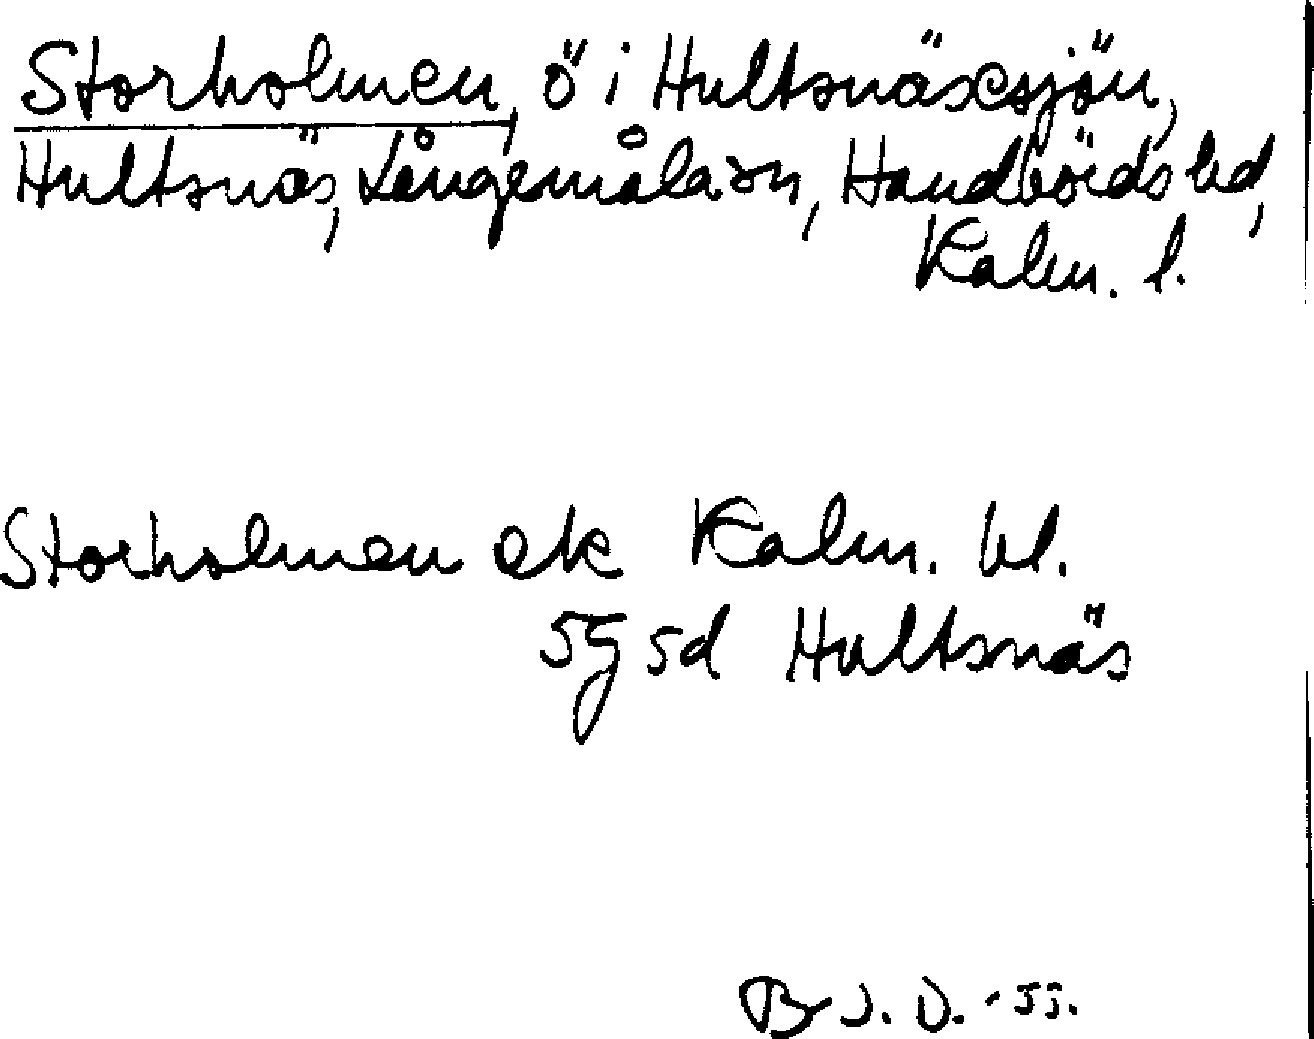 Storholmen, ö i Hultsnäsesjön,
Hultsnäs, Långemåla sn, Handbörds hd,
Kalm. l.
Storholmen ek Kalm. bl.
5g 5d Hultsnäs
B J. D. -55.